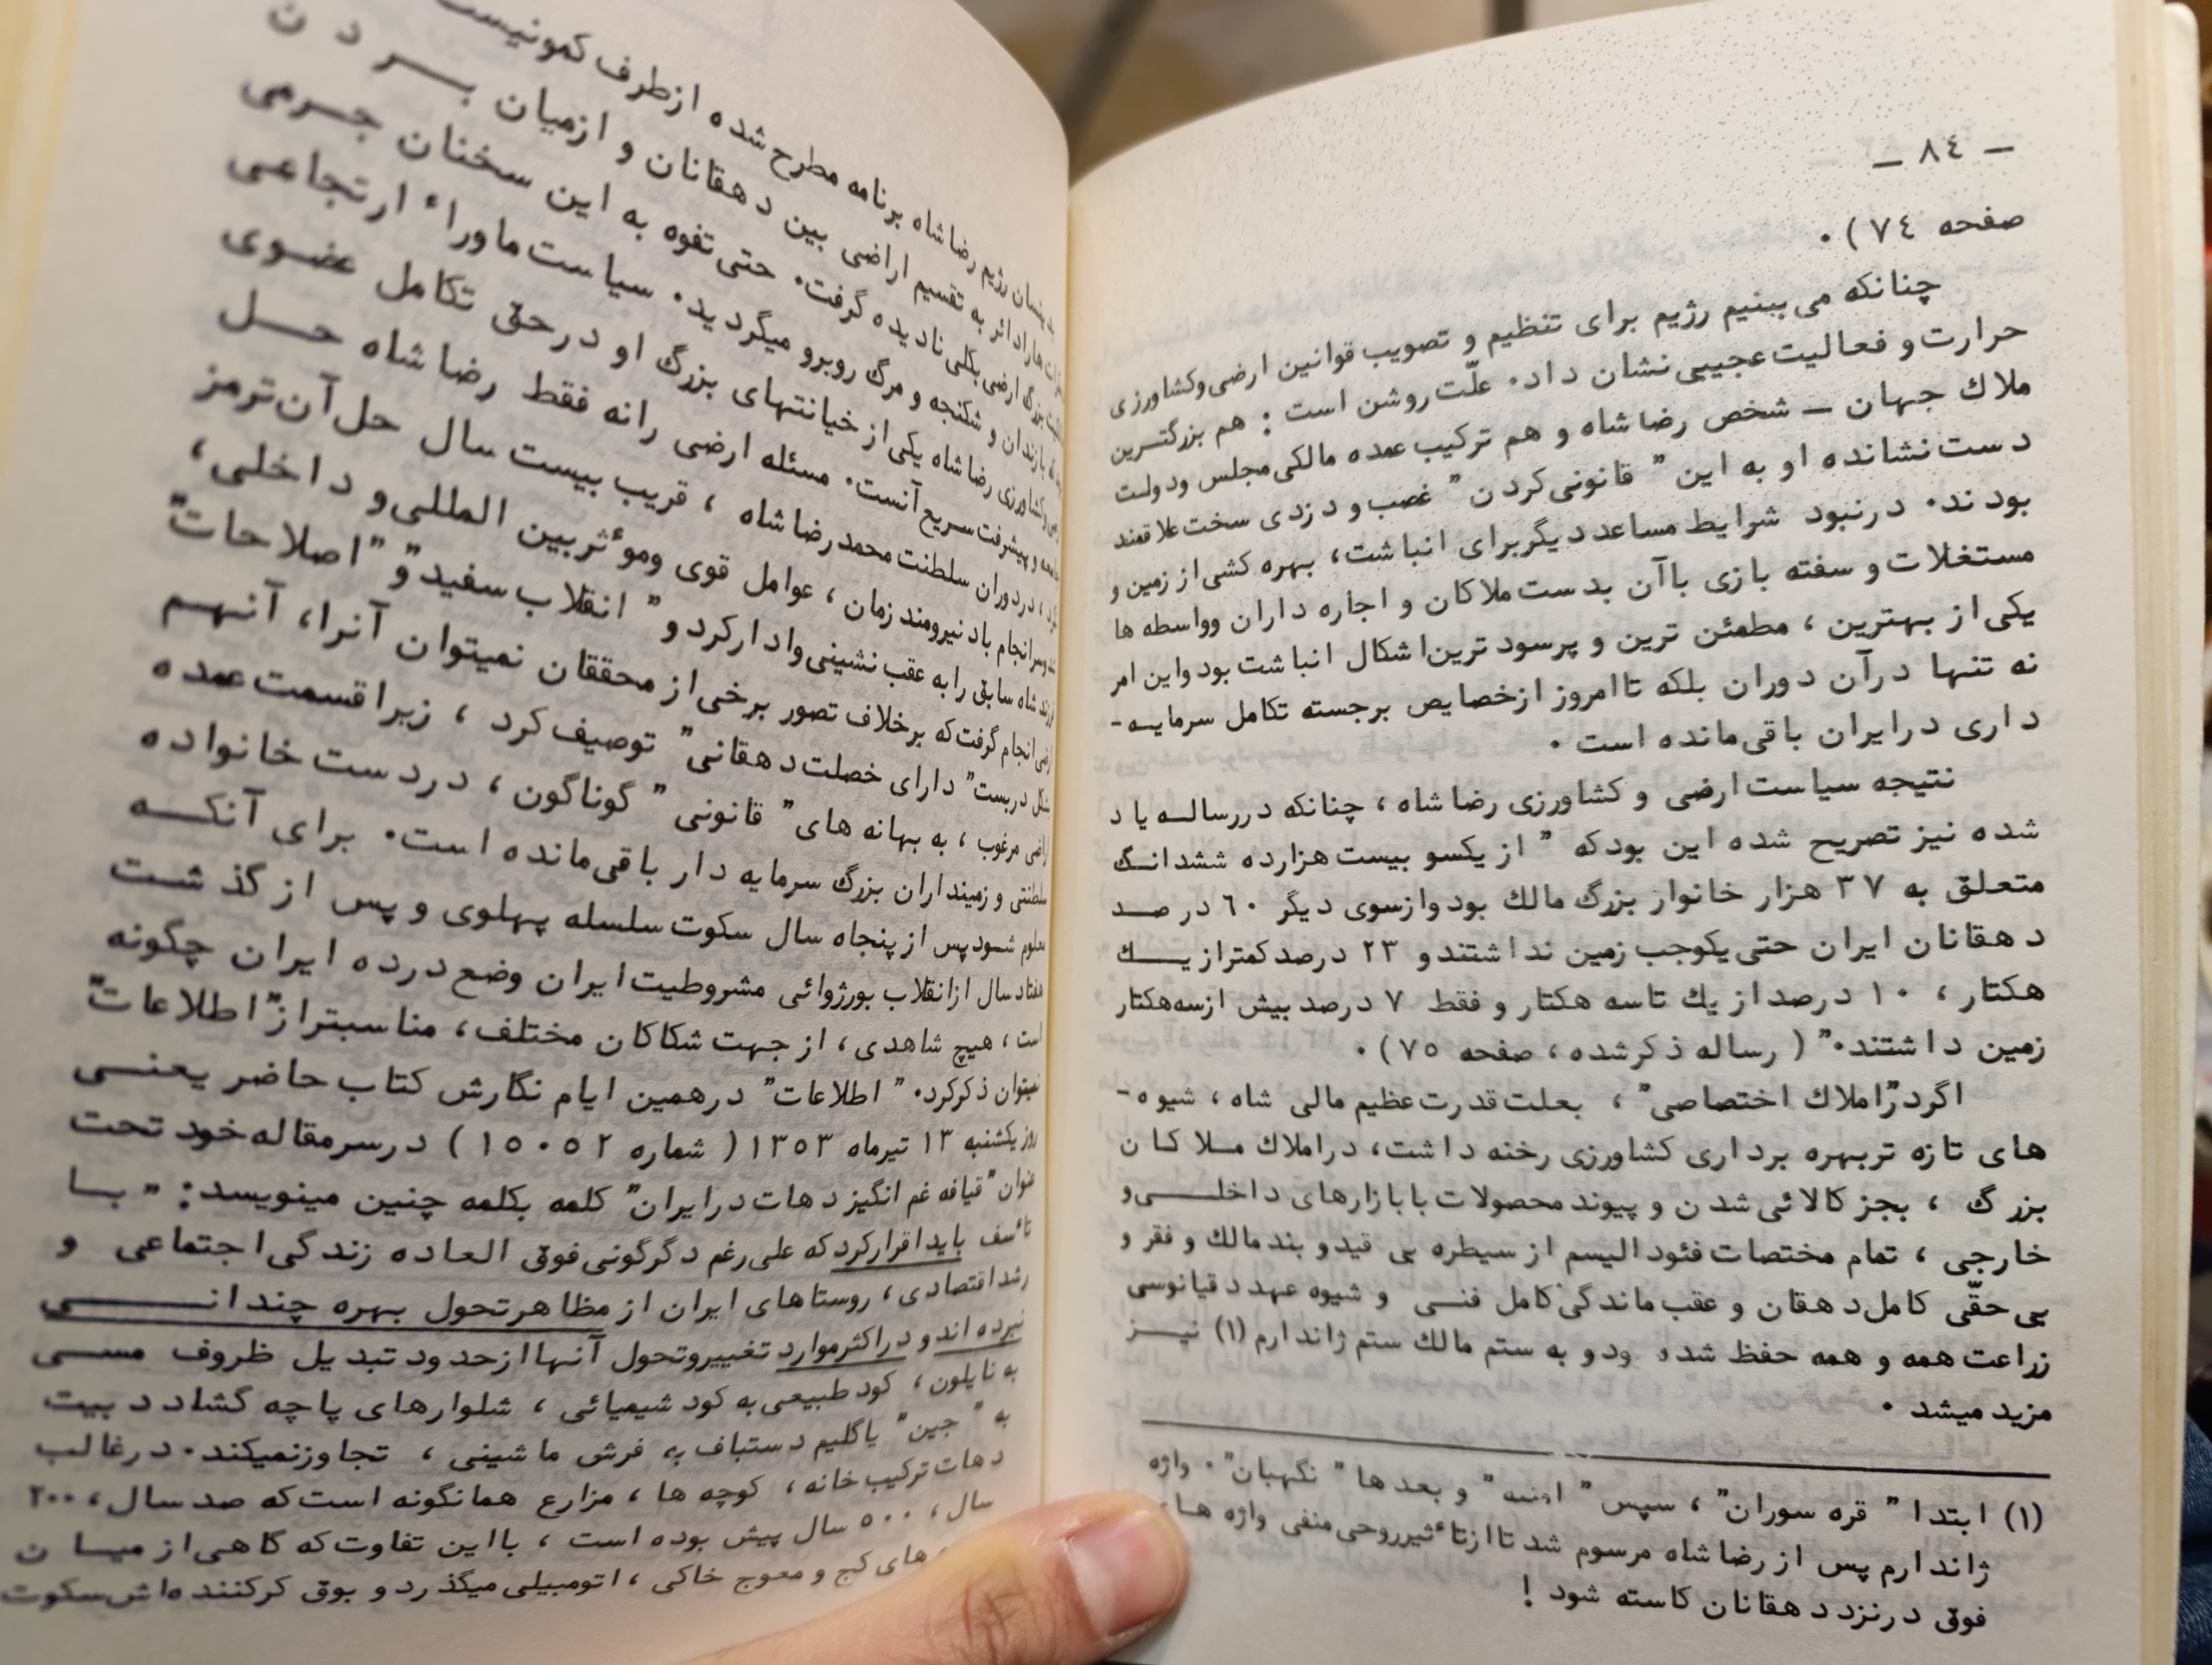 — ٨٤ —
صفحه ٧٤) ٠
چنانکه می بینیم رژیم برای تنظیم و تصویب قوانین ارضی وکشاورزی
حرارت و فعالیت عجیبی نشان داد٠ علّت روشن است : هم بزرگترین
ملاک جهان — شخص رضا شاه و هم ترکیب عمده مالکی مجلس ودولت
دست نشانده او به این " قانونی کردن " غصب و دزدی سخت علاقمند
بودند٠ درنبود شرایط مساعد دیگربرای انباشت، بهره کشی از زمین و
مستغلات و سفته بازی باآن بدست ملاکان و اجاره داران وواسطه ها
یکی از بهترین ، مطمئن ترین و پرسود ترین اشکال انباشت بود واین امر
نه تنها درآن دوران بلکه تاامروز ازخصایص برجسته تکامل سرمایه-
داری درایران باقی مانده است ٠
نتیجه سیاست ارضی و کشاورزی رضا شاه ، چنانکه دررساله یاد
شده نیز تصریح شده این بودکه " از یکسو بیست هزارده ششدانگ
متعلق به ٣٧ هزار خانوار بزرگ مالك بود وازسوی دیگر ٦٠ درصد
دهقانان ایران حتی یکوجب زمین نداشتند و ٢٣ درصد کمتراز یك
هکتار ، ١٠ درصد از یك تاسه هکتار و فقط ٧ درصد بیش ازسه هکتار
زمین داشتند٠" ( رساله ذکرشده ، صفحه ٧٥) ٠
اگردر"املاك اختصاصی" ، بعلت قدرت عظیم مالی شاه ، شیوه-
های تازه تربهره برداری کشاورزی رخنه داشت، دراملاك ملاکان
بزرگ ، بجز کالائی شدن و پیوند محصولات بابازارهای داخلی و
خارجی ، تمام مختصات فئودالیسم از سیطره بی قید و بند مالك و فقر و
بی حقّی کامل دهقان و عقب ماندگی کامل فنی و شیوه عهد دقیانوسی
زراعت همه و همه حفظ شده ودو به ستم مالك ستم ژاندارم (١) نیز
مزید میشد ٠
(١) ابتدا " قره سوران" ، سپس " امنیه" و بعدها " نگهبان" ٠ واژه
ژاندارم پس از رضاشاه مرسوم شد تااز تأثیرروحی منفی واژه های
فوق درنزد دهقانان کاسته شود !
رژیم رضا شاه برنامه مطرح شده ازطرف
به تقسیم اراضی بین دهقانان و ازمیان بردن
ارضی بکلی نادیده گرفت٠ حتی تفوه به این سخنان جرمی
بازندان و شکنجه و مرگ روبرو میگردید٠ سیاست ماوراء ارتجاعی
وکشاورزی رضا شاه یکی از خیانتهای بزرگ او درحق تکامل عضوی
و پیشرفت سریع آنست٠ مسئله ارضی رانه فقط رضا شاه حل
دردوران سلطنت محمد رضا شاه ، قریب بیست سال حل آن ترمز
وسرانجام باد نیرومند زمان ، عوامل قوی وموٴثربین المللی و داخلی،
شاه سابق رابه عقب نشینی وادارکرد و " انقلاب سفید" و "اصلاحات
ارضی انجام گرفت که برخلاف تصور برخی از محققان نمیتوان آنرا، آنهم
شکل دربست" دارای خصلت دهقانی" توصیف کرد ، زیراقسمت عمده
اراضی مرغوب ، به بهانه های " قانونی " گوناگون ، دردست خانواده
سلطنتی و زمینداران بزرگ سرمایه دار باقی مانده است٠ برای آنکه
معلوم شود پس از پنجاه سال سکوت سلسله پهلوی و پس از گذشت
هفتاد سال ازانقلاب بورژوائی مشروطیت ایران وضع درده ایران چگونه
است ، هیچ شاهدی ، از جهت شکاکان مختلف ، مناسبتراز"اطلاعات"
نمیتوان ذکرکرد٠ " اطلاعات" درهمین ایام نگارش کتاب حاضر یعنی
روز یکشنبه ١٣ تیرماه ١٣٥٣ ( شماره ١٥٠٥٢ ) درسرمقاله خود تحت
عنوان "قیافه غم انگیز دهات درایران" کلمه بکلمه چنین مینویسد: " با
تأسف باید اقرارکرد که علی رغم دگرگونی فوق العاده زندگی اجتماعی و
رشد اقتصادی ، روستاهای ایران از مظاهرتحول بهره چندانی
نبرده اند و دراکثرموارد تغییروتحول آنهاازحدود تبدیل ظروف مسی
به نایلون ، کود طبیعی به کود شیمیائی ، شلوارهای پاچه گشاد دبیت
به " جین" یاگلیم دستباف به فرش ماشینی ، تجاوزنمیکند٠ درغالب
دهات ترکیب خانه ، کوچه ها ، مزارع همانگونه است که صد سال ، ٢٠٠
سال ، ٥٠٠ سال پیش بوده است ، بااین تفاوت که گاهی از میان
های کج و معوج خاکی ، اتومبیلی میگذرد و بوق کرکننده اش سکوت